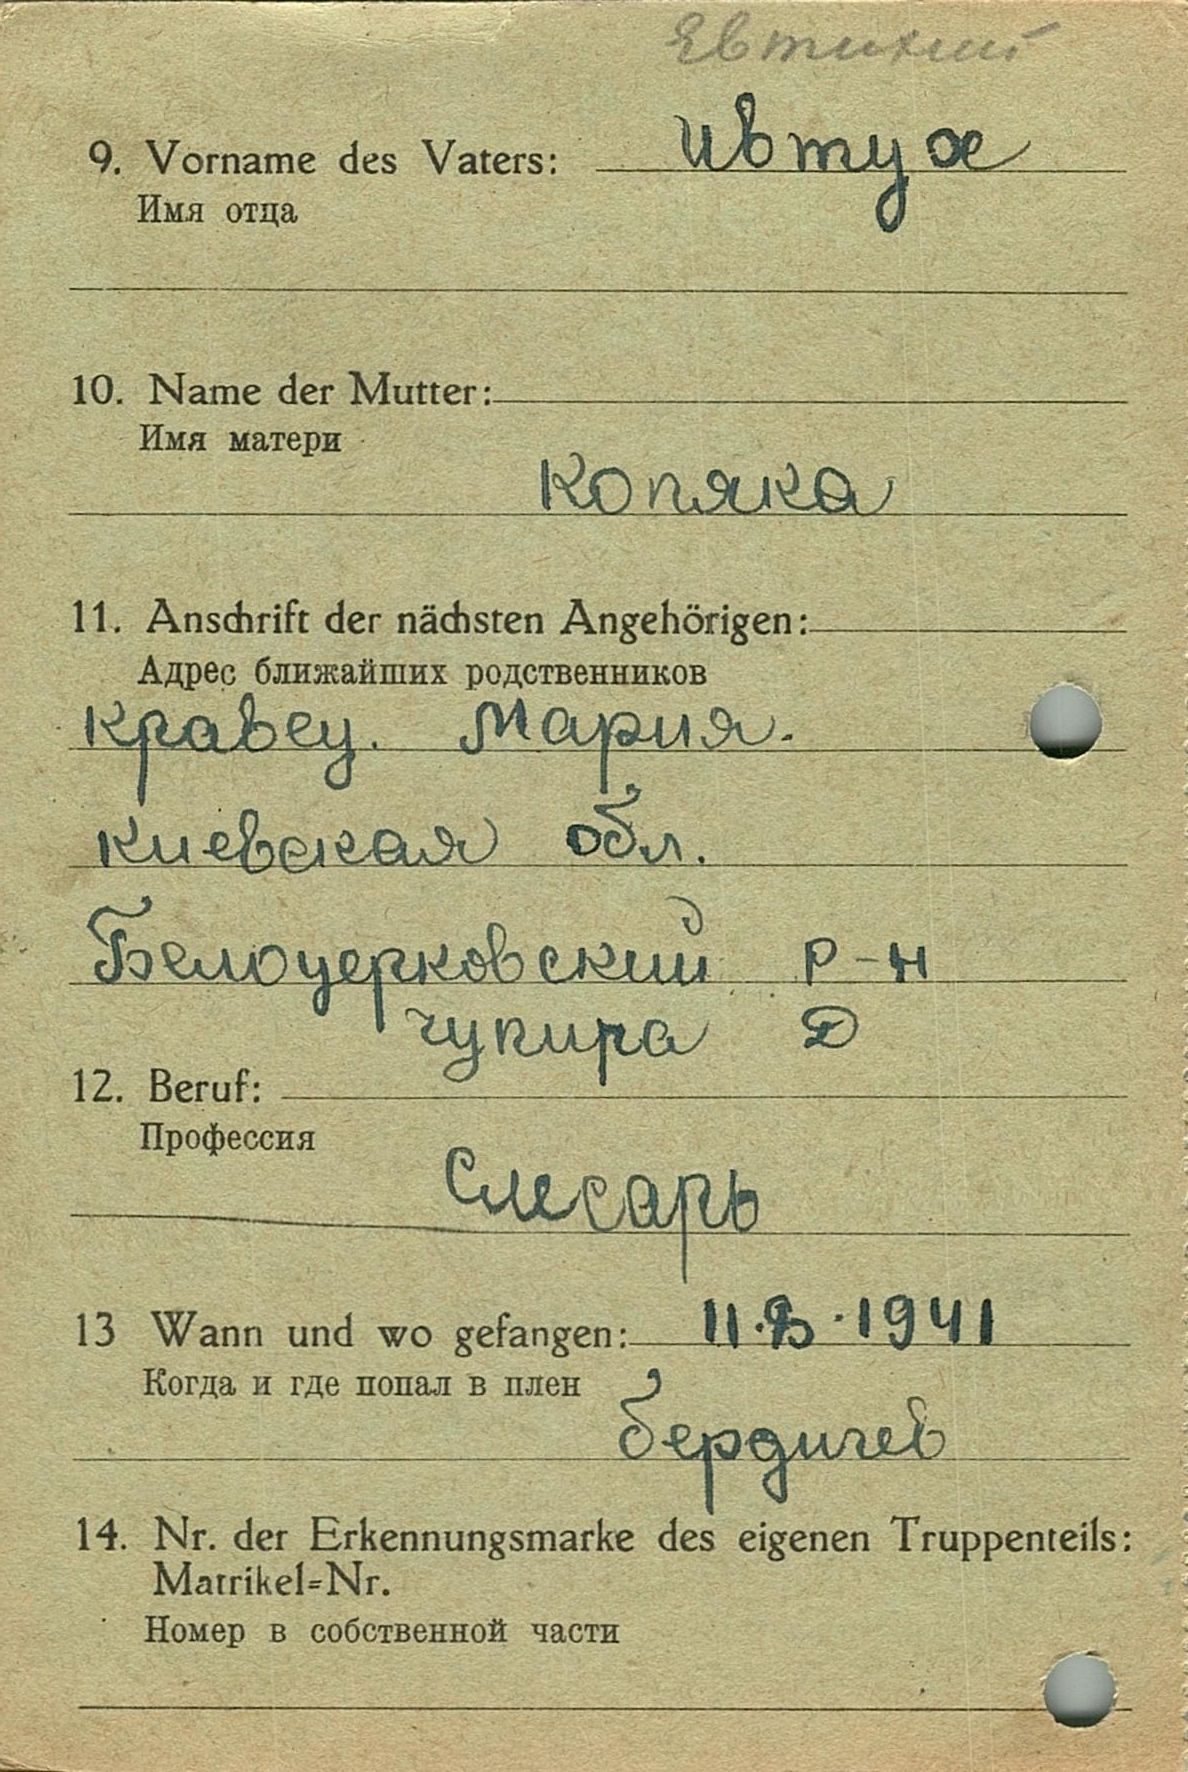 Евтихий
9. Vorname des Vaters: Ивтух
Имя отца
10. Name der Mutter:
Имя матери
Копяка
11. Anschrift der nächsten Angehörigen:
Адрес ближайших родственников
Кравец. Мария.
Киевская обл.
Белоцерковский Р-Н
Чупира Д
12. Beruf:
Профессия
Слесарь
13 Wann und wo gefangen: 11. .1941
Когда и где попал в плен
бердичев
14. Nr. der Erkennungsmarke des eigenen Truppenteils:
Matrikel=Nr.
Номер в собственной части